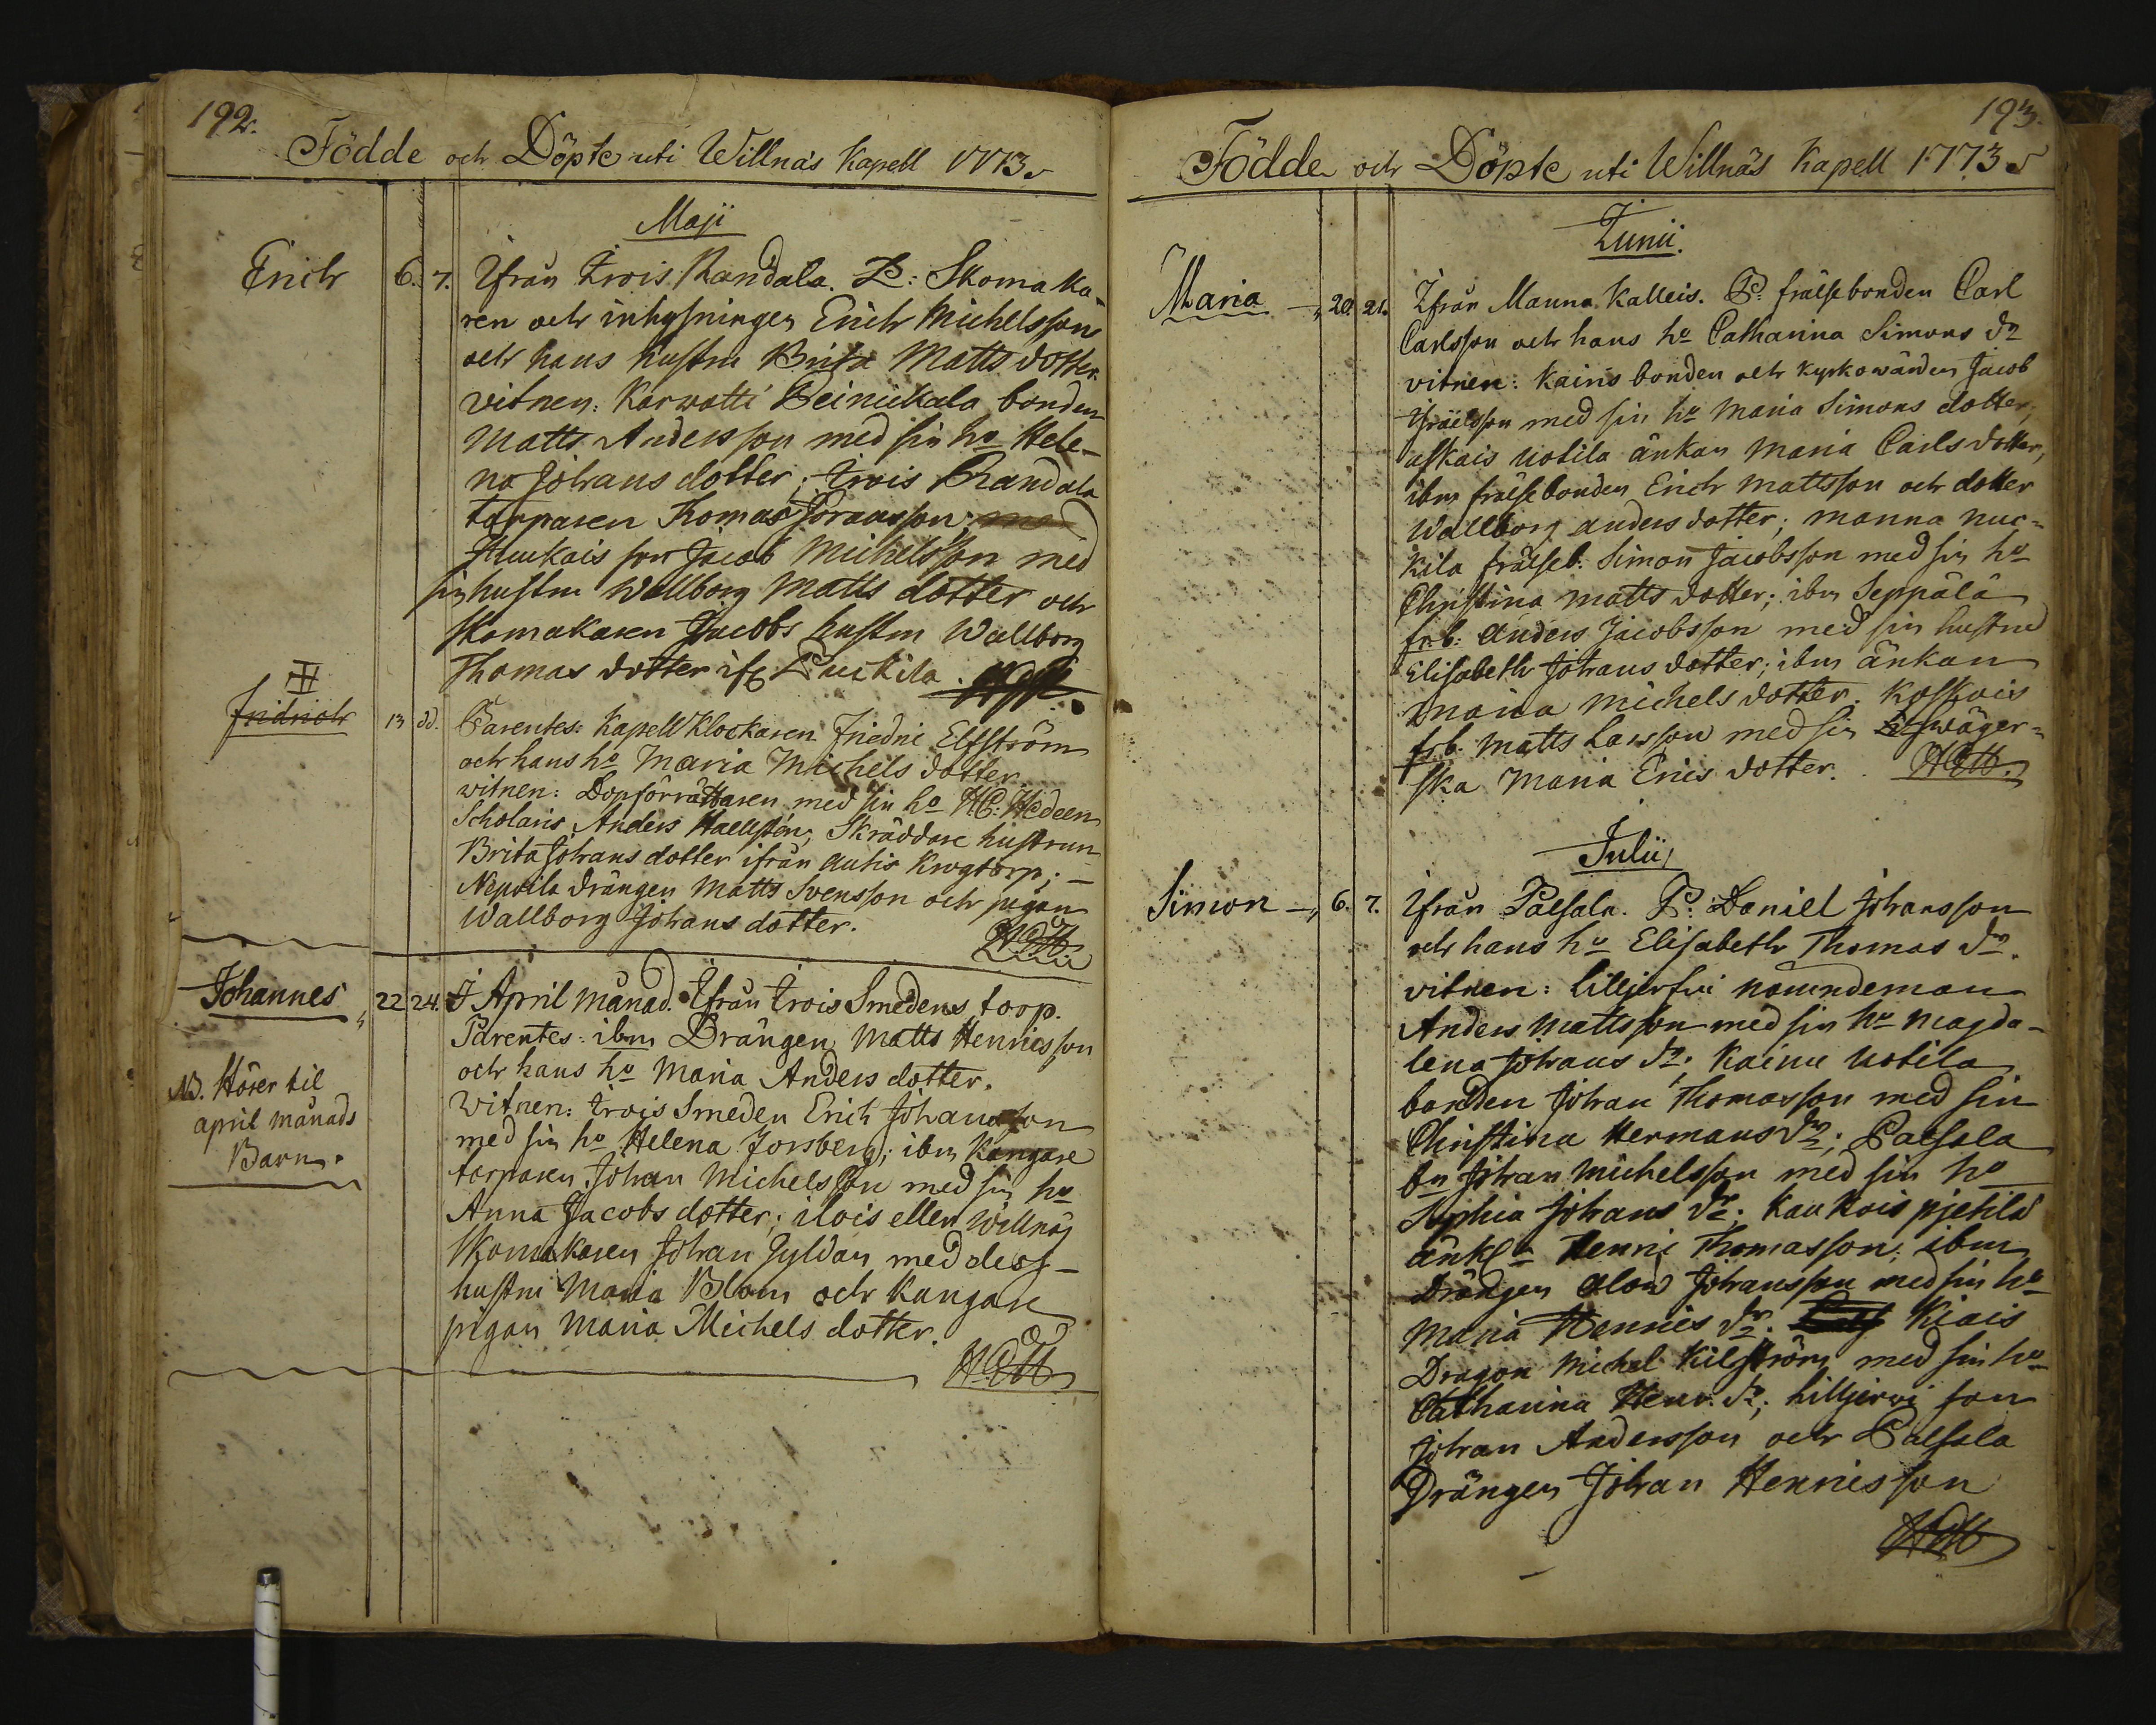 192.
Födde och Döpte uti Willnäs Kapell 1773.
Maji
Erich 6. 7. Ifrån Trois Randala. P: Skomaka-
ren och inhysningen Erich Michelsson
och hans hustru Brita Matts dotter.
vitnen: Karwatti Beinickala bonden
Matts Andersson med sin ho Hele-
na Johans dotter; Trois Randala
torparen Thomas Göransson;
son Jacob Michelsson med
sin hustru Wallborg Matts dotter och
skomakaren Jacobs hustru Wallborg
Thomas dotter if
Fridrich 13 dd. Parentes: Kapell Klockaren Friedric Elfström
och hans ho Maria Michels dotter
witnen: Dopförrättaren med sin ho H.C. Hedeen
Scholaris Anders Haellstén; Skräddare hustrun
Brita Johans dotter ifrån autis krogtorp; —
Nepoila drängen Matts Svensson och pigan
Wallborg Johans dotter.
Johannes 22 24. I April månad. Ifrån Trois Smedens torp.
Parentes: ibm Drängen Matts Henricsson
och hans ho Maria Anders dotter.
NB. Hörer til
april månads
Barn.
Witnen: Trois Smeden Erich Johansson
med sin ho Helena Forsberg; ibm Kangare
torparen Johan Michelsson med sin ho
Anna Jacobs dotter; ilois eller Willnäs
Skomakaren Johan Gyldan med dess
hustru Maria Blom och Kangare
pigan Maria Michels dotter.
193.
Födde och Döpte uti Willnäs Kapell 1773
Junii.
Maria 20. 21. Ifrån Manna Kalleis. P: frälsebonden Carl
Carlsson och hans ho Catharina Simons dr
vitnen: Kainis bonden och kyrkowärden Jacob
Israelsson med sin ho Maria Simons dotter,
askais Uotila änkan Maria Carls dotter,
ibm frälsebonden Erich Mattsson och dotter
Wallborg anders dotter; manna nuc=
kila frälseb. Simon Jacobsson med sin ho
Christina matts dotter; ibm Seppälä
fr.b: anders Jacobsson med sin hustru
Elisabeth Johans dotter; ibm änkan
maria michels dotter. Koskois
frb. matts Larsson med sin swäger=
ska Maria Erics dotter.
Julii
Simon 6. 7. Ifrån Palsala. P: Daniel Johansson
och hans ho Elisabeth Thomas dr.
vitnen: Lilljerfvi nämndeman
Anders Mattsson med sin ho Magda-
lena Johans dr; Kainu Uotila
bonden Johan Thomasson med sin
Christina Hermans dr; Palsala
bn Johan Michelsson med sin ho
Sophia Johans dr; Kaukois pjetilä
änkl Henric Thomasson; ibm
Drängen olow Johansson med sin ho
Maria Henrics dr. Kiais
Dragon Michel Kilström med sin ho
Catharina Henr. dr; Lilljerwi son
Johan Andersson och Palsala
Drängen Johan Henricsson